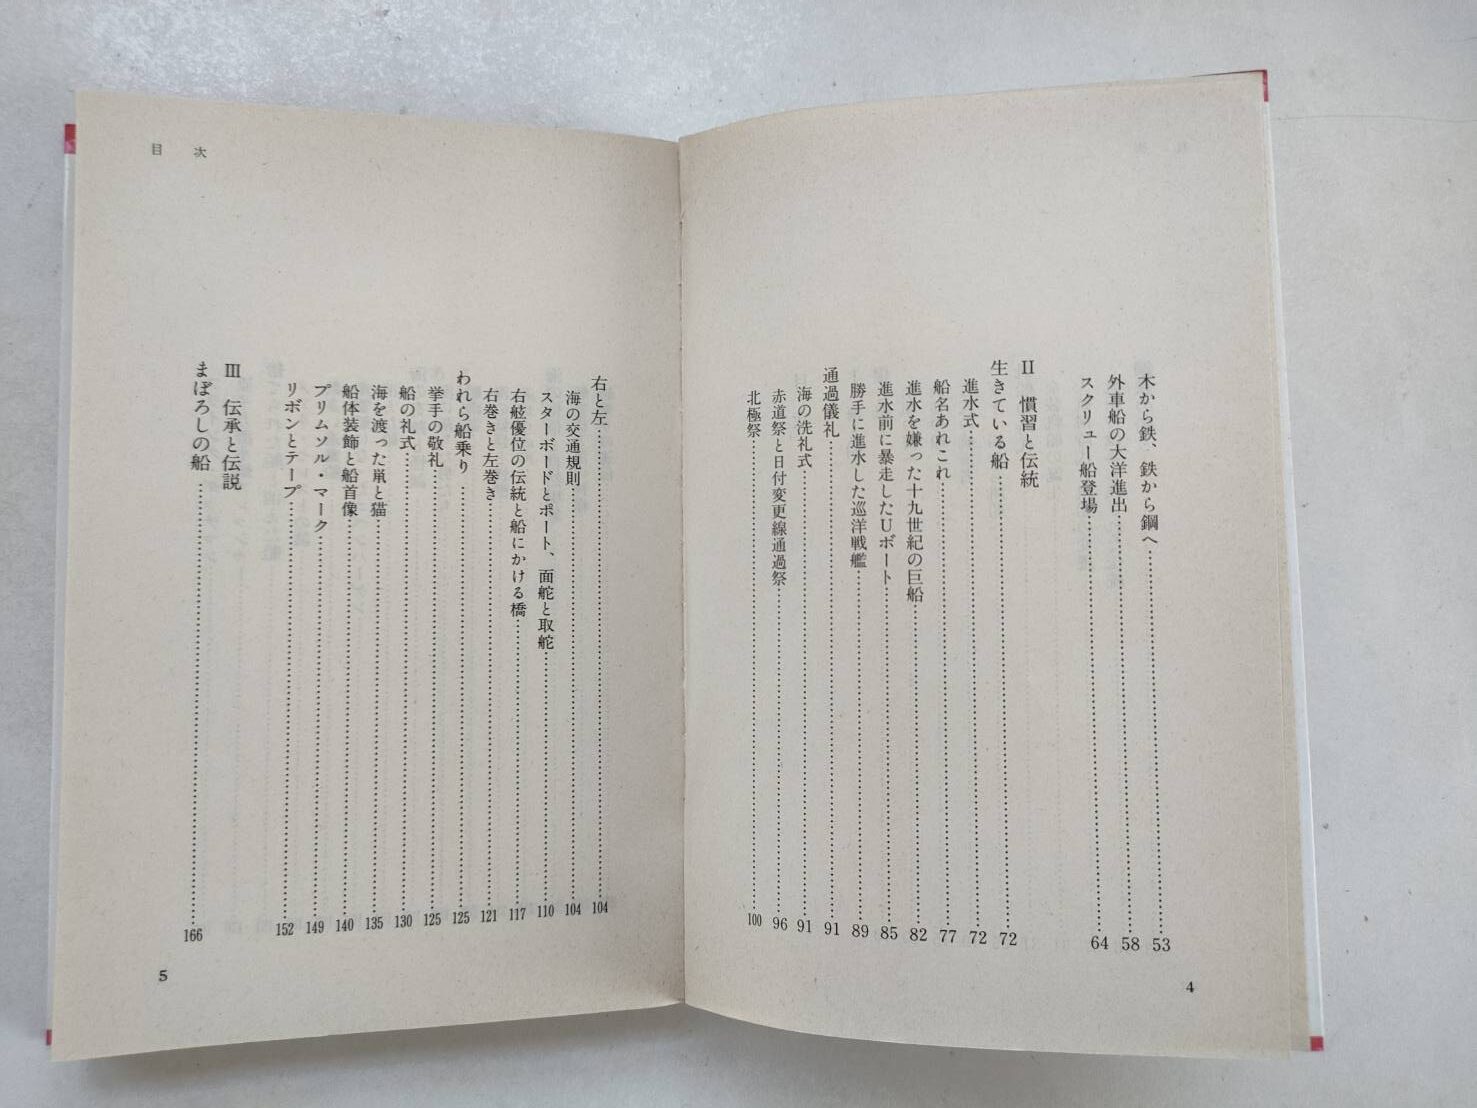 木から鉄、鉄から鋼へ……53
外車船の大洋進出……58
スクリュー船登場……64
II 慣習と伝統
生きている船……72
進水式……72
船名あれこれ……77
進水を嫌った十九世紀の巨船……82
進水前に暴走したUボート……85
勝手に進水した巡洋戦艦……89
通過儀礼……91
海の洗礼式……91
赤道祭と日付変更線通過祭……96
北極祭……100
4
目次
右と左……104
海の交通規則……104
スターボードとポート、面舵と取舵……110
右舷優位の伝統と船にかける橋……117
右巻きと左巻き……121
われら船乗り……125
挙手の敬礼……125
船の礼式……130
海を渡った鼠と猫……135
船体装飾と船首像……140
プリムソル・マーク……149
リボンとテープ……152
III 伝承と伝説
まぼろしの船……166
5